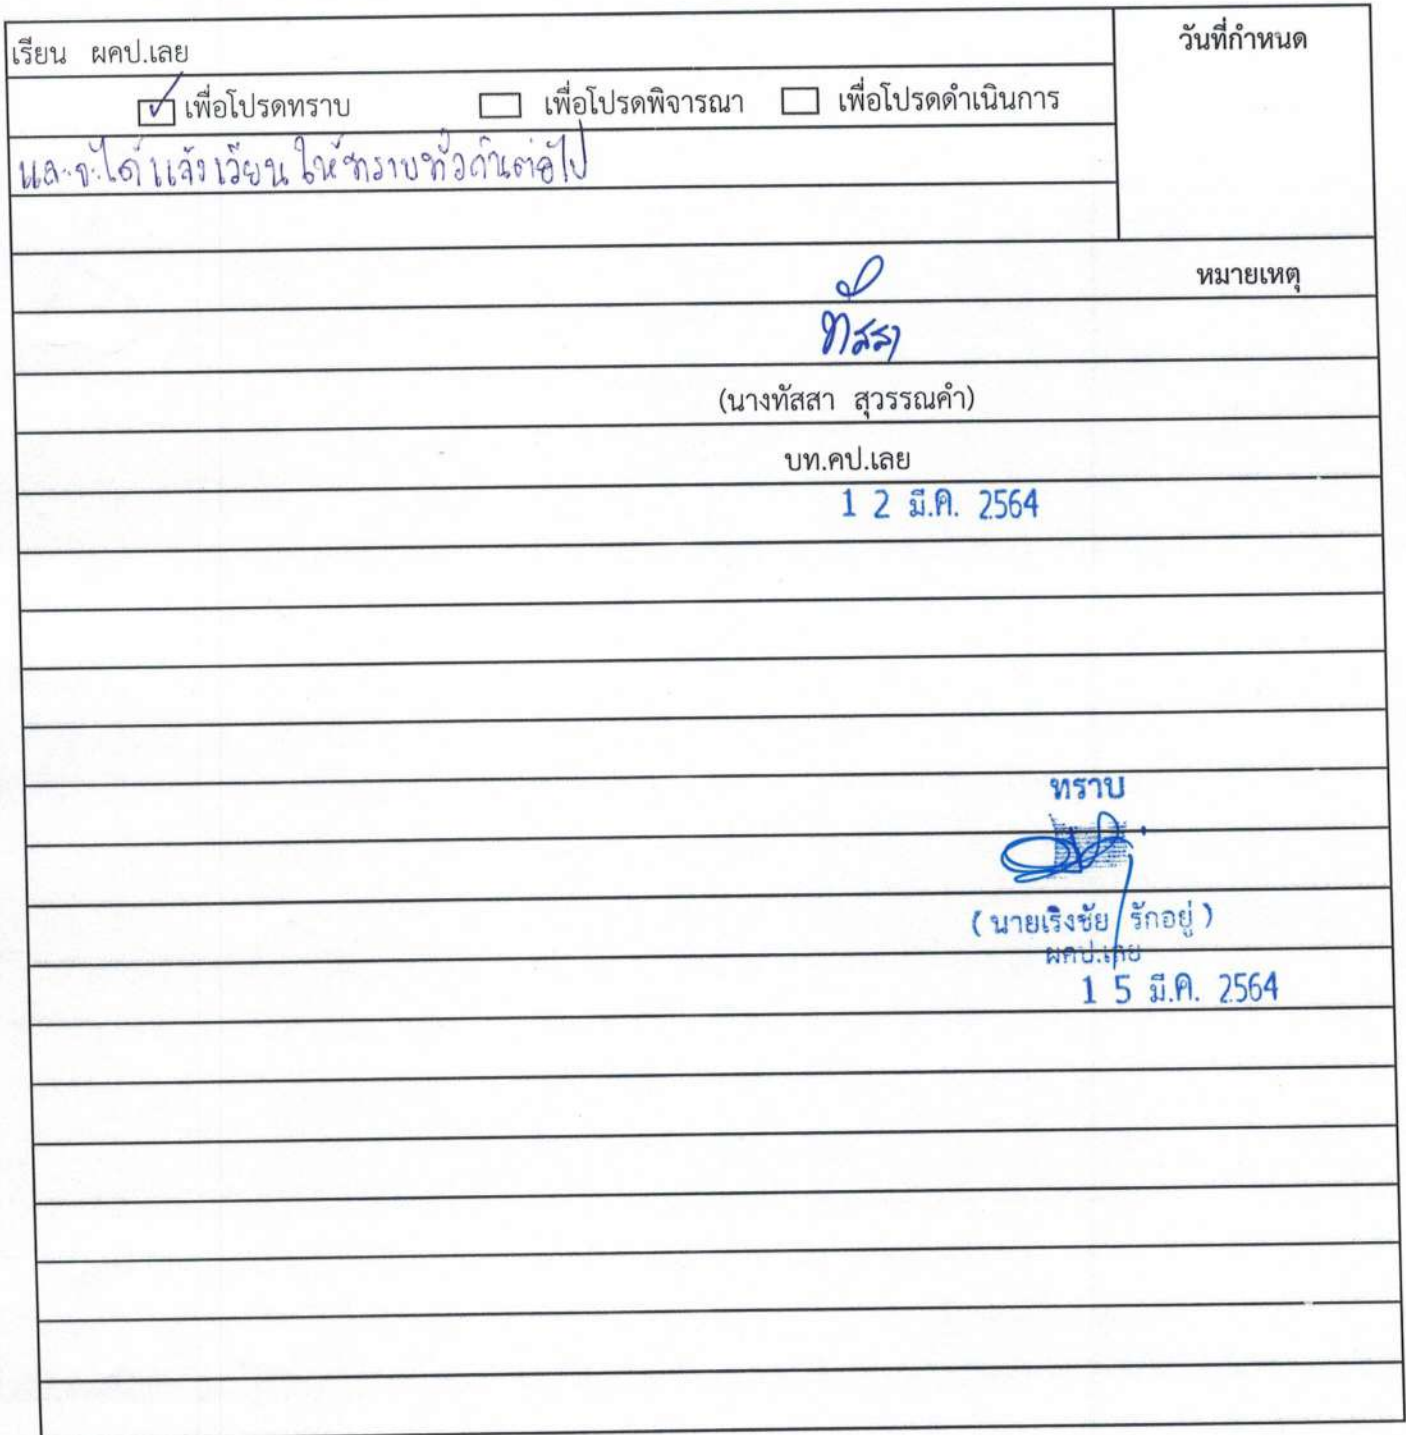 เรียน ผคป.เลย
วันที่กำหนด
เพื่อโปรดทราบ เพื่อโปรดพิจารณา เพื่อโปรดดำเนินการ
และจะได้แจ้งเวียนให้ทราบทั่วกันต่อไป
หมายเหตุ
ทัสสา
(นางทัสสา สุวรรณคำ)
บท.คป.เลย
1 2 มี.ค. 2564
ทราบ
( นายเริงชัย รักอยู่ )
ผคป.เลย
1 5 มี.ค. 2564